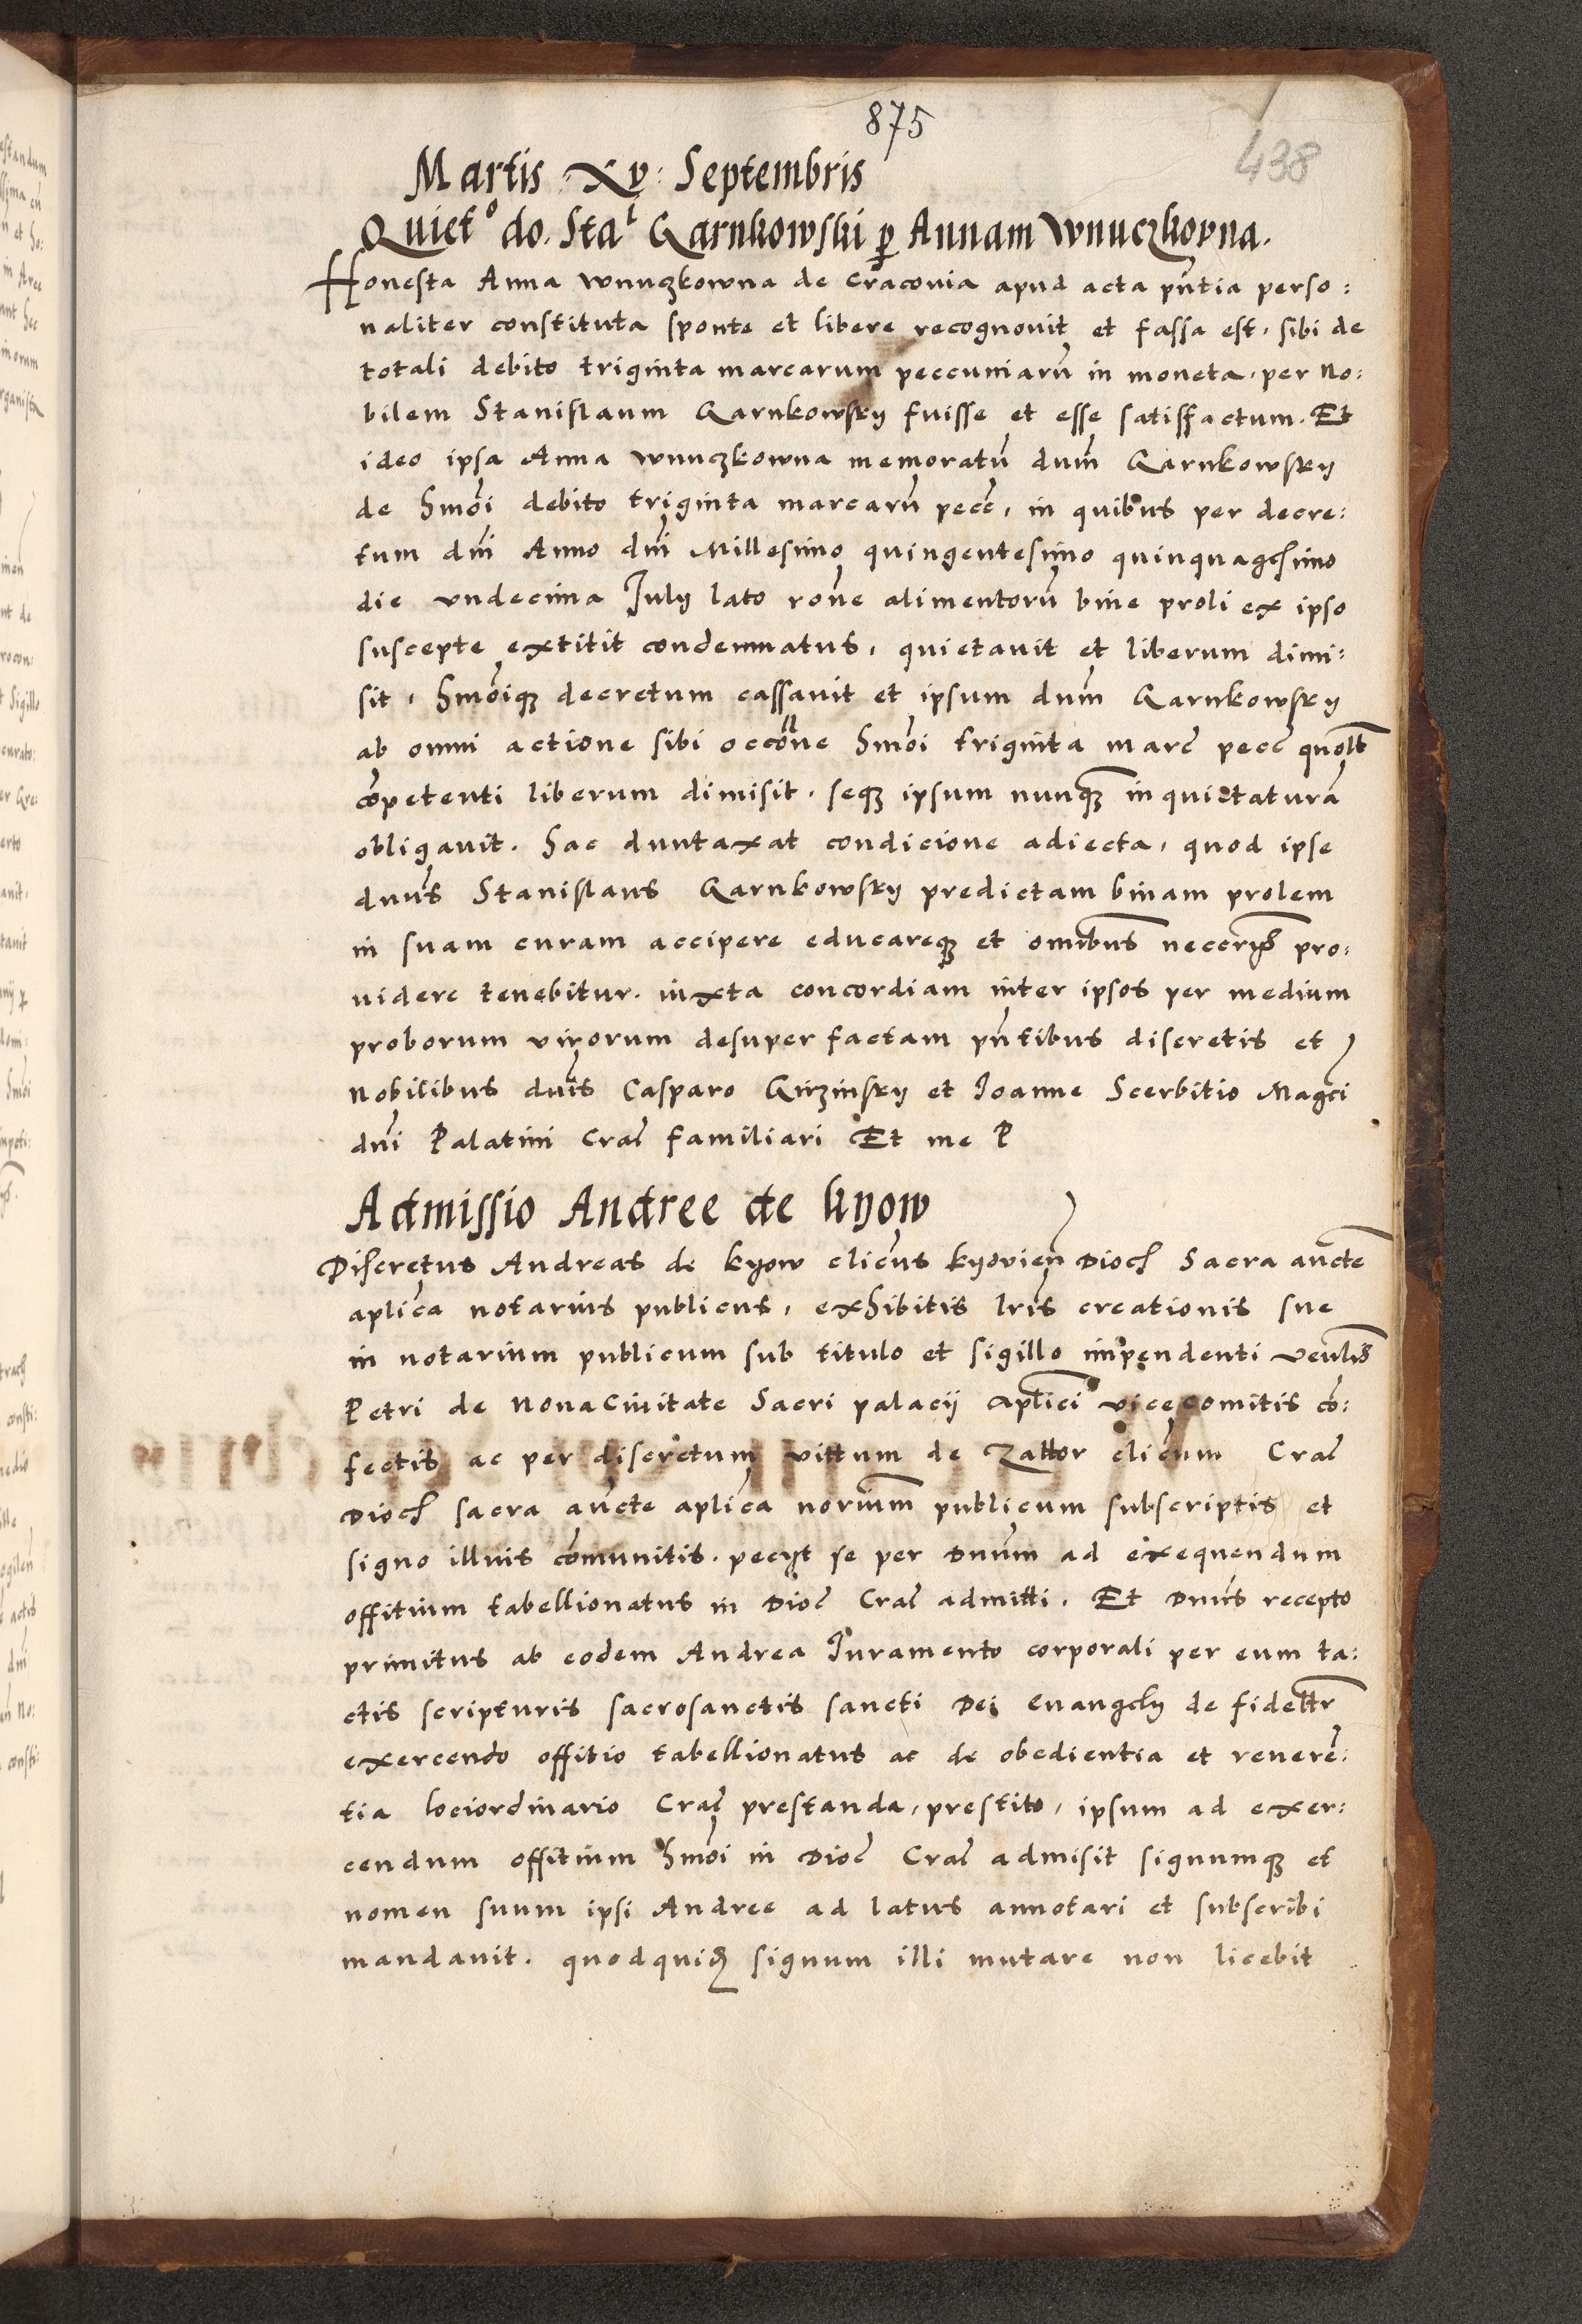 875
438
Martis · Xv · Septembris
Quietᵒ do. Staˡ Garnkowski ꝑ Annam Wnuczkovna.
Honesta Anna Wnuczkowna de Cracouia apud acta pñtia perso:
naliter constituta sponte et libere recognouit et fassa est, sibi de
totali debito triginta marcarum peccuniarũ in moneta, per No:
bilem Stanislaum Garnkowsky fuisse et esse satisffactum. Et
ideo ipsa Anna Wnuczkowna memoratũ dum̃ Garnkowsky
de hmõi debito triginta marcarũ pecc̃, in quibus per decre:
tum dñi Anno dñi Millesimo quingentesimo quinquagesimo
die vndecima July lato rõne alimentorũ bine proli ex ipso
suscepte extitit condemnatus, quietauit et liberum dimi:
sit, hmõiqꝫ decretum cassauit et ipsum dum̃ Garnkowsky
ab omni actione sibi occõne hmõi triginta marc̃ pecc̃ quolt̃
cõpetenti liberum dimisit, seqꝫ ipsum nunqꝫ inquietaturã
obligauit. Hac duntaxat condicione adiecta, quod ipse
dnũs Stanislaus Garnkowsky predictam binam prolem
in suam curam accipere educareqꝫ et omĩbus neccerÿs pro:
uidere tenebitur. iuxta concordiam inter ipsos per medium
proborum virorum desuper factam pñtibus discretis et
Nobilibus dñis Casparo Girzinsky et Joanne Scerbitio Magci
dñi Palatini Crac̃ familiari Et me P
Admissio Andree de kyow
Discretus Andreas de kyow clicus̃ kyovien̄ Dioc̃ Sacra auc̃te
aplica notarius publicus, exhibitis lr̃is creationis sue
in notarium publicum sub titulo et sigillo impendenti venlis̃
Petri de Noua Ciuitate Sacri palacij aplici vicecomitis cõ:
fectis ac per discretum vittum de Zattor clicum Crac̃
Dioc̃ sacra auc̃te aplica norium̃ publicum subscriptis et
signo illius cõmunitis. pecyt se per Dnũm ad exequendum
offitium tabellionatus in Dioc̃ Crac̃ admitti. Et Dnũs recepto
primitus ab eodem Andrea Juramento corporali per eum ta:
ctis scripturis sacrosanctis sancti Dei Euangely de fidelt̃r
exercendo offitio tabellionatus ac de obedientia et reuerẽ:
tia lociordinario Crac̃ prestanda, prestito, ipsum ad exer:
cendum offitium hmõi in Dioc̃ Crac̃ admisit signumqꝫ et
nomen suum ipsi Andree ad latus annotari et subscribi
mandauit. quodquidꝫ signum illi mutare non licebit